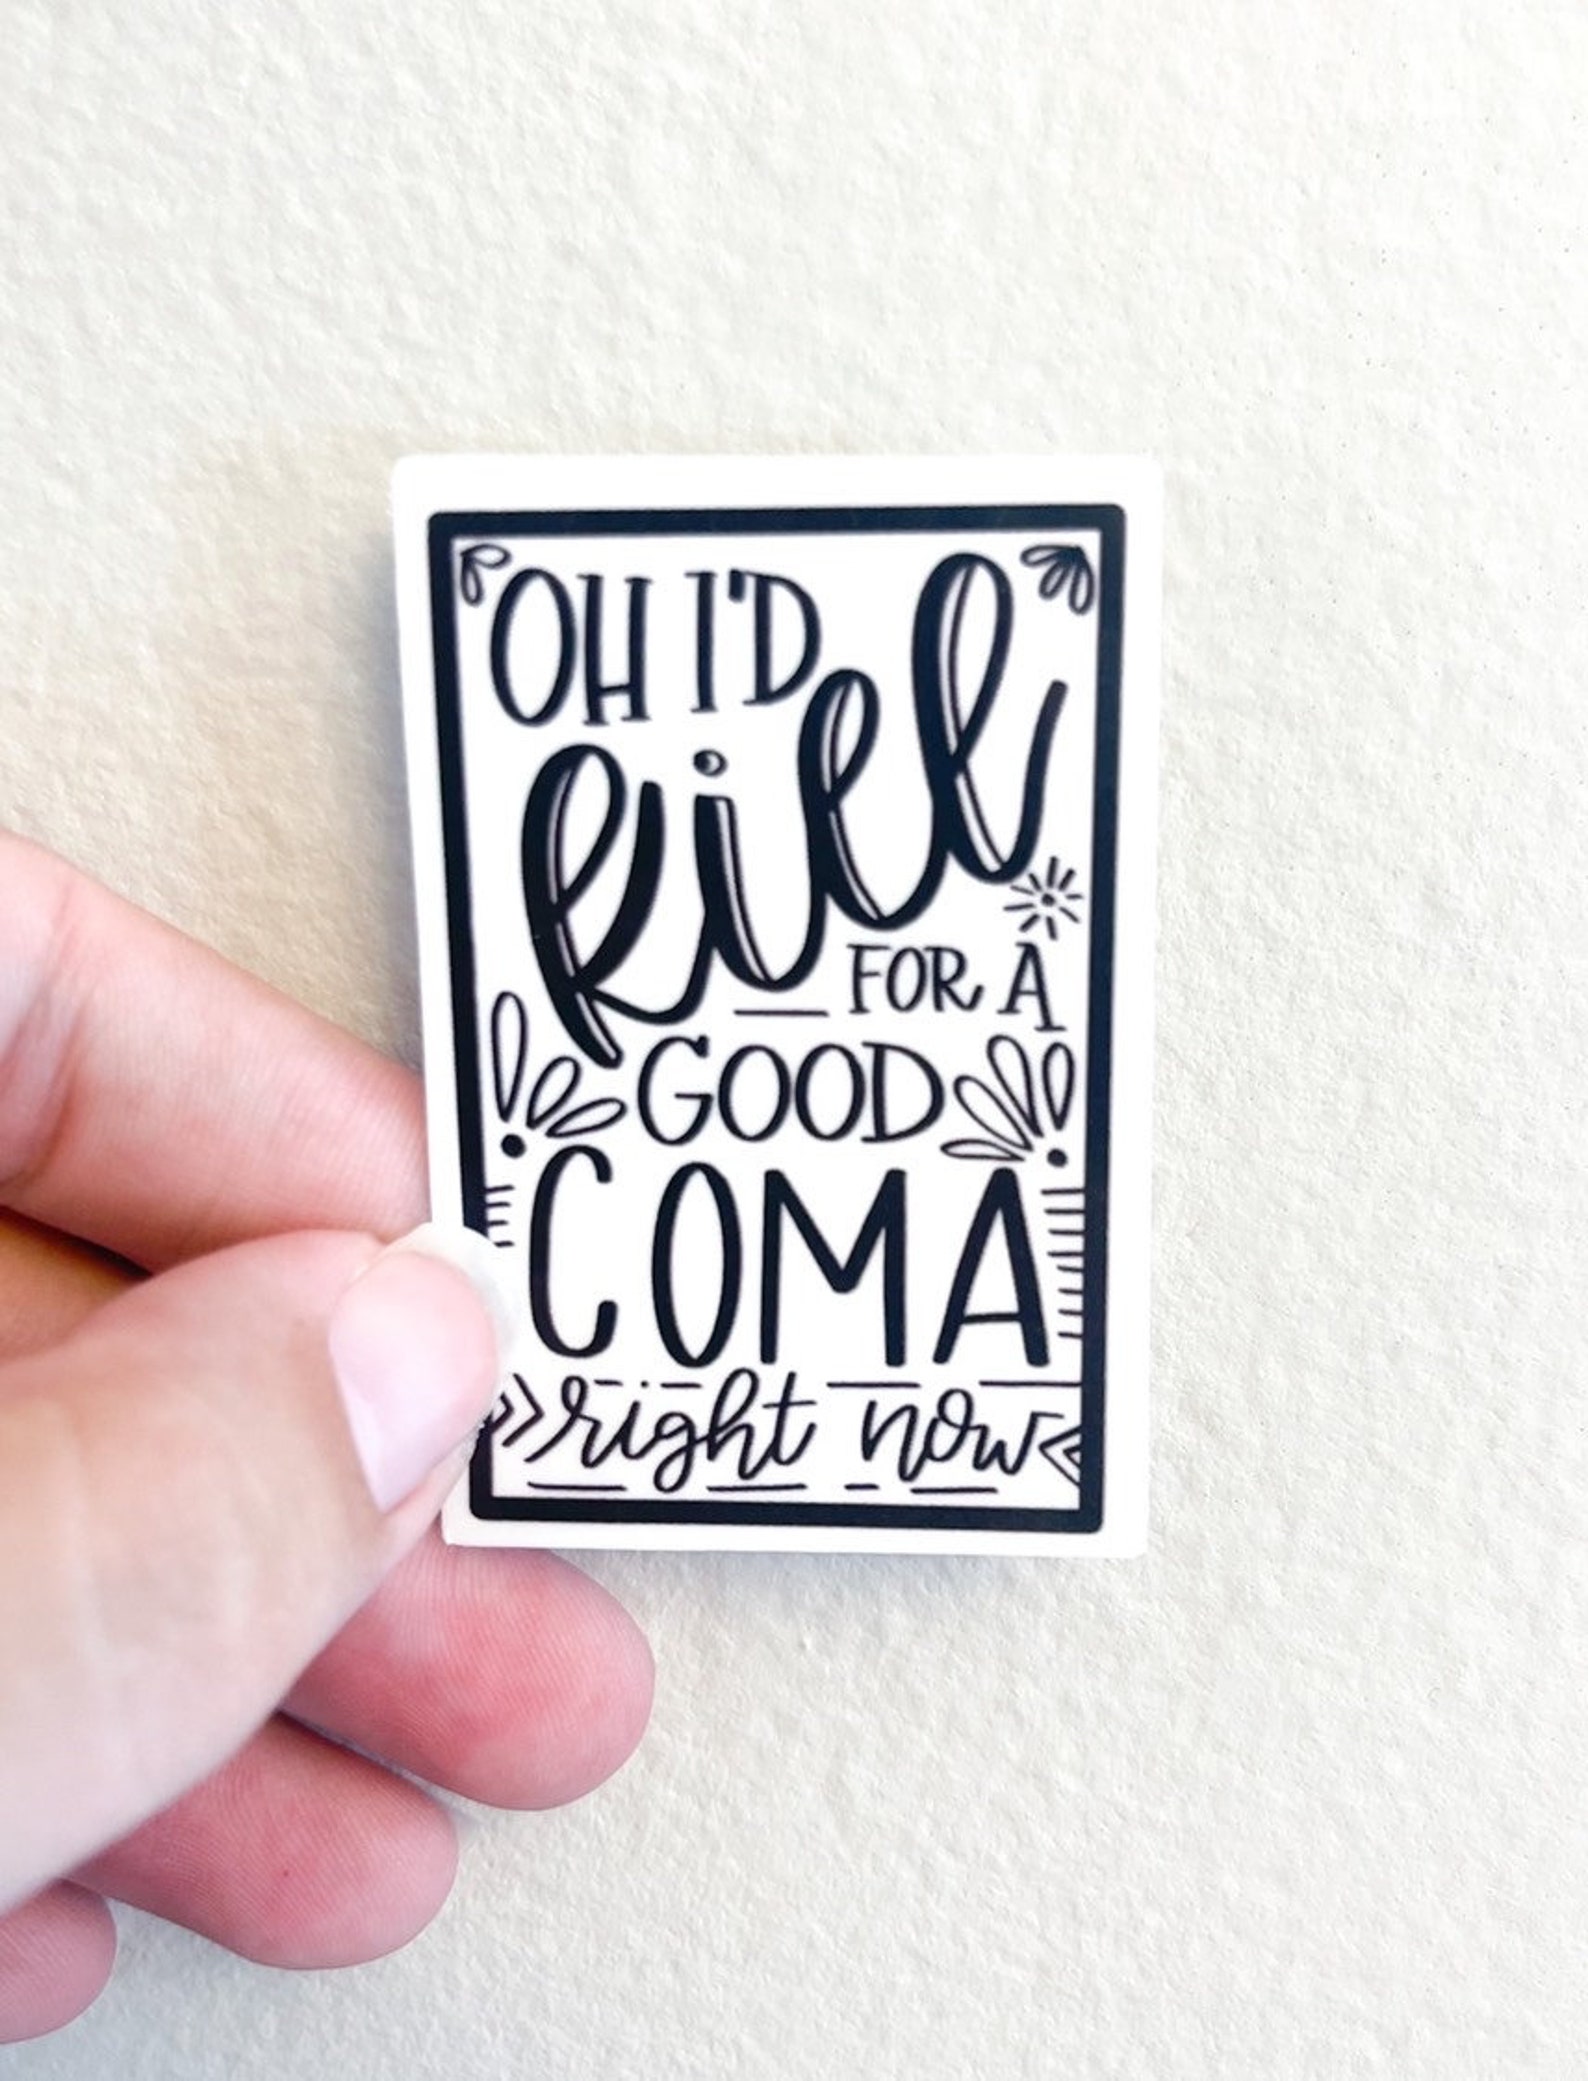 OH I'D
kill
FOR A
GOOD
COMA
right now